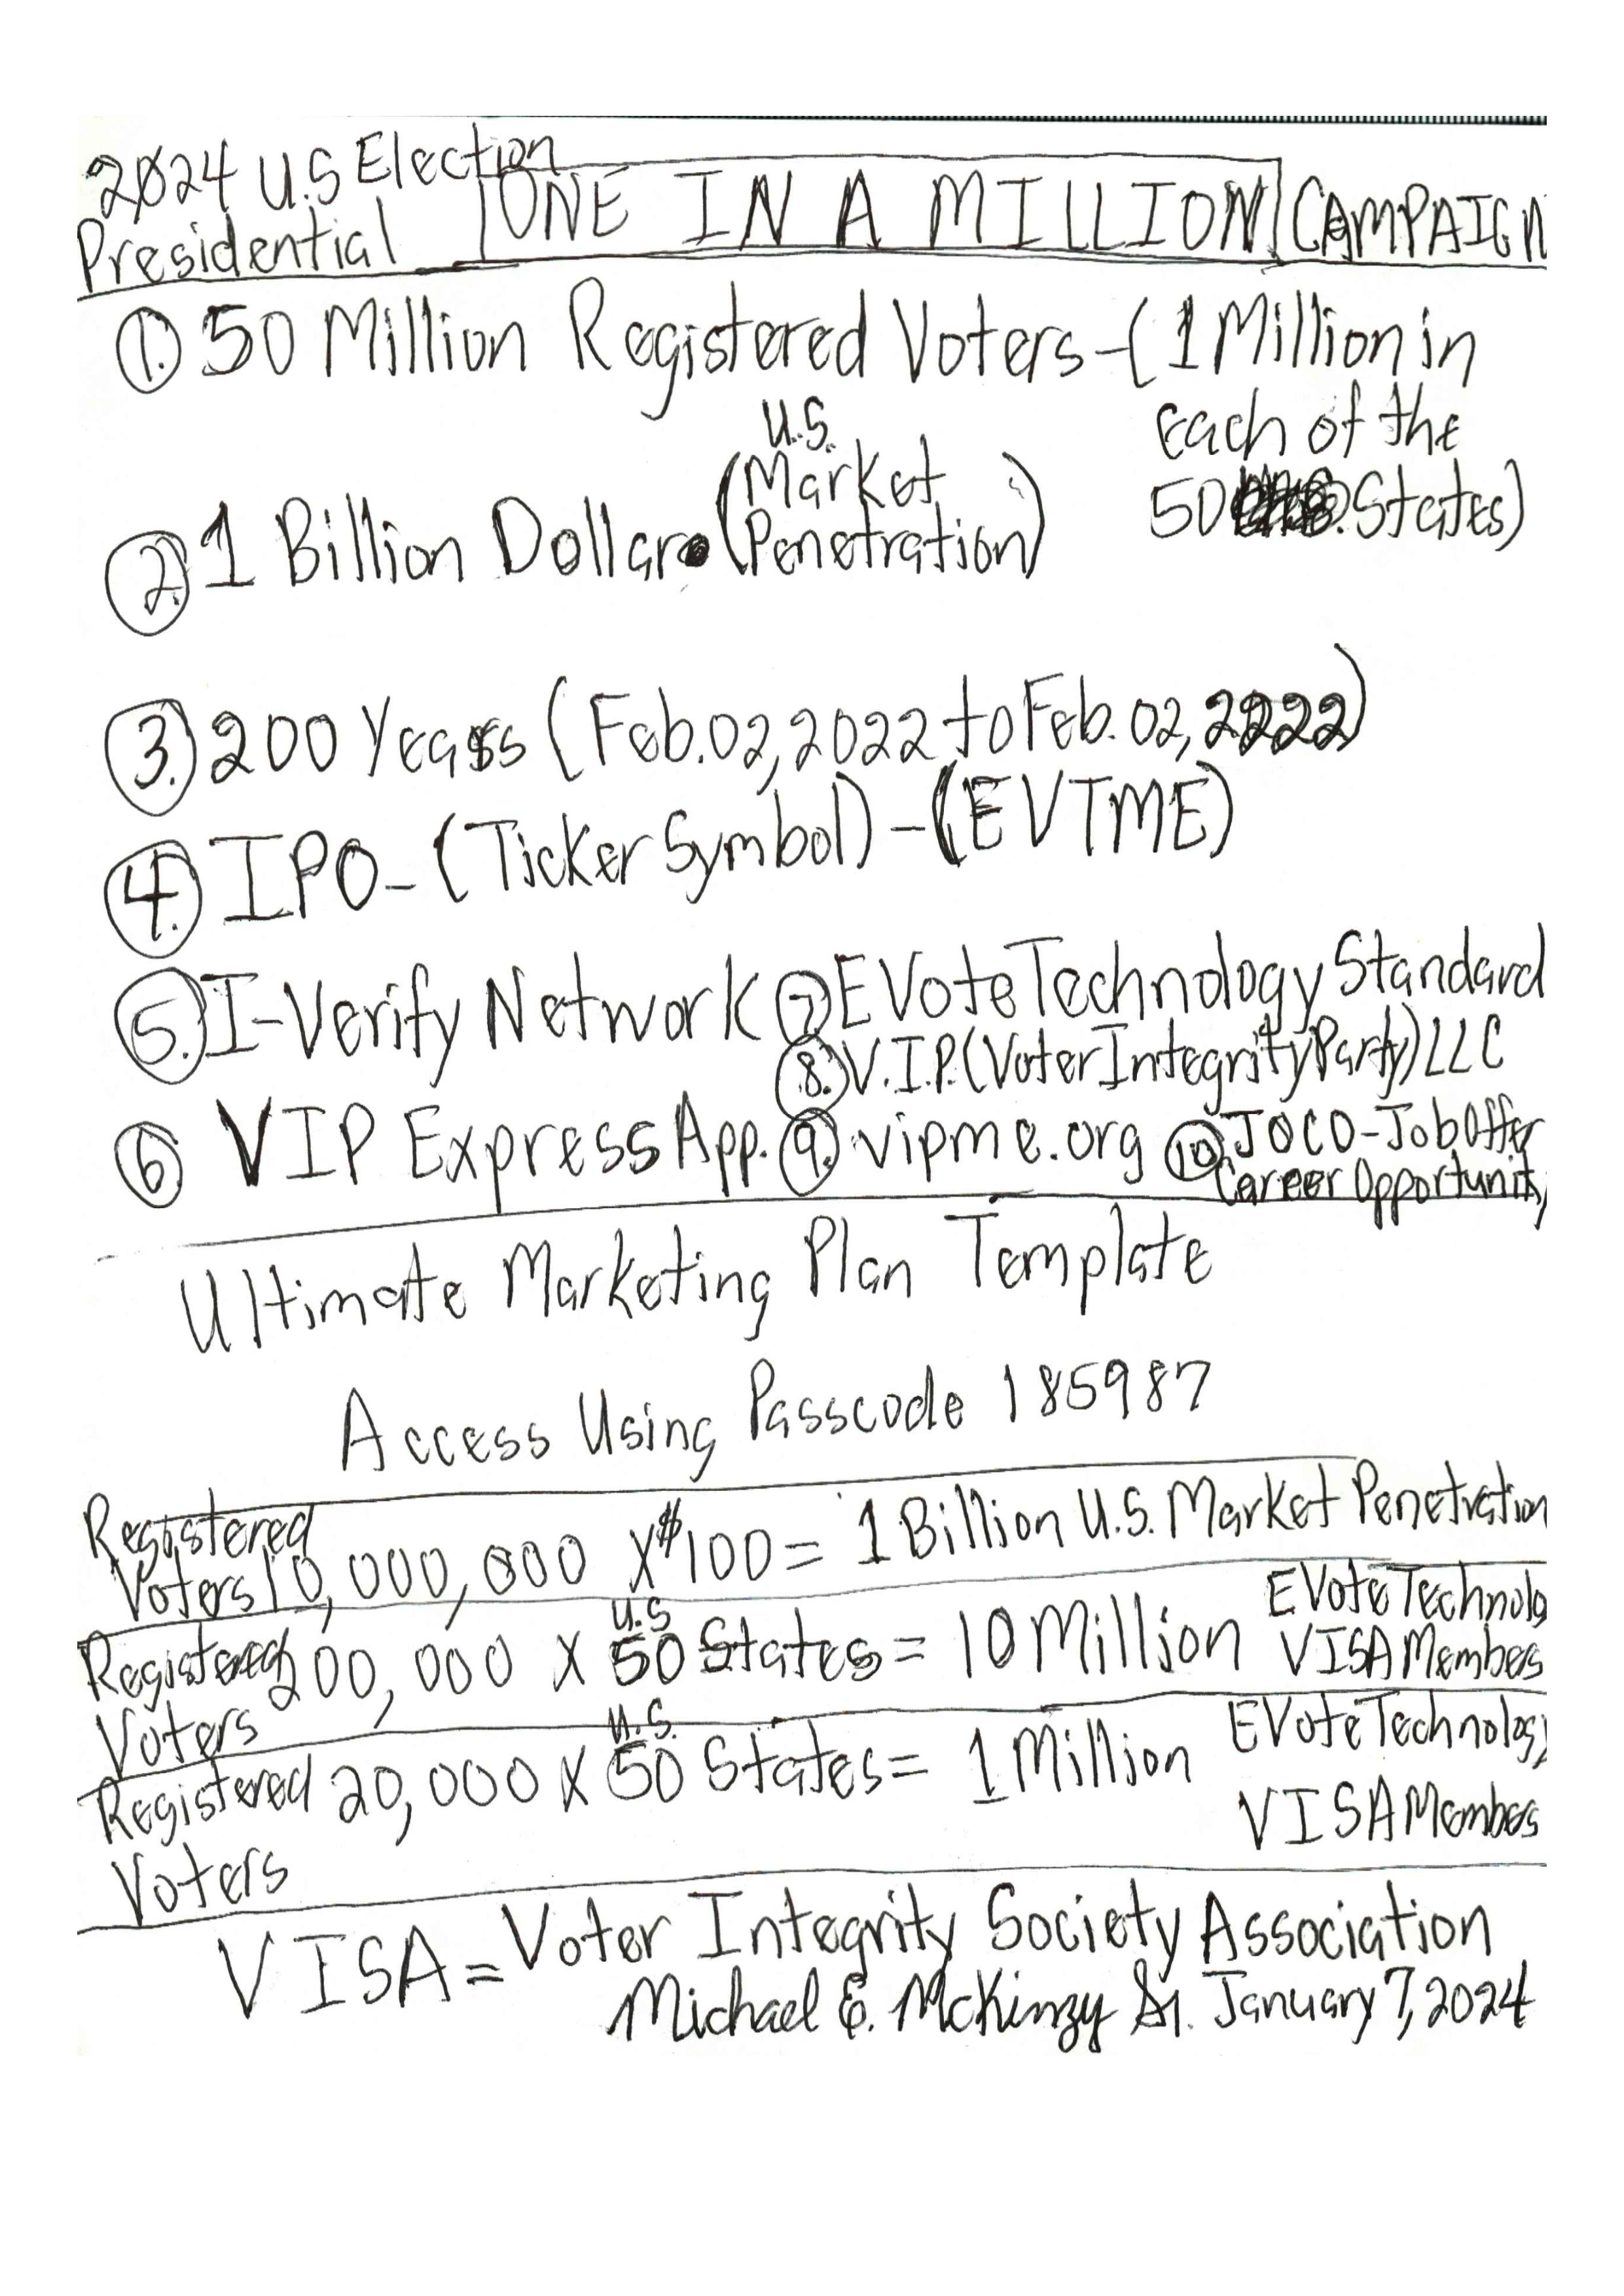 2024 U.S Election
Presidential ONE IN A MILLION CAMPAIGN
1. 50 Million Registered Voters-(1 Million in
each of the
50 States)
2. 1 Billion Dollar (U.S.
Market
Penetration)
3. 200 Years (Feb.02,2022 to Feb.02,2222)
4. IPO-(Ticker Symbol)-(EVTME)
5. I-Verify Network 7. EVoteTechnology Standard
8. V.I.P.(VoterIntegrityParty)LLC
6. VIP Express App. 9. vipme.org 10. JOCO-Job Offer
Career Opportunity
Ultimate Marketing Plan Template
Access Using Passcode 185987
Registered
Voters 10,000,000 X $100 = 1 Billion U.S. Market Penetration
Registered 200,000 X U.S 50 States = 10 Million EVoteTechnolo
Voters VISA Members
Registered 20,000 X U.S. 50 States = 1 Million EVoteTechnology
Voters VISA Members
VISA = Voter Integrity Society Association
Michael E. McKinzy Sr. January 7, 2024